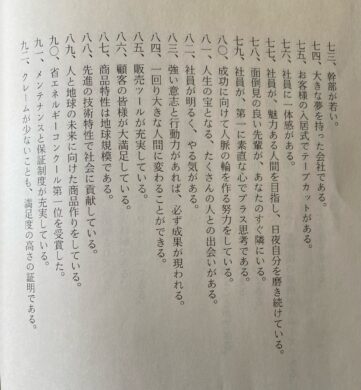 七三、幹部が若い。
七四、大きな夢を持った会社である。
七五、お客様の入居式でテープカットがある。
七六、社員に一体感がある。
七七、社員が、魅力ある人間を目指し、日夜自分を磨き続けている。
七八、面倒見の良い先輩が、あなたのすぐ隣にいる。
七九、社員が、第一に素直な心でプラス思考である。
八〇、成功に向けて人脈の輪を作る努力をしている。
八一、人生の宝となる、たくさんの人との出会いがある。
八二、社員が明るく、やる気がある。
八三、強い意志と行動力があれば、必ず成果が現われる。
八四、一回り大きな人間に変わることができる。
八五、販売ツールが充実している。
八六、顧客の皆様が大満足している。
八七、商品特性は地球規模である。
八八、先進の技術特性で社会に貢献している。
八九、人と地球の未来に向けた商品作りをしている。
九〇、省エネルギーコンクール第一位を受賞した。
九一、メンテナンスと保証制度が充実している。
九二、クレームが少ないことも、満足度の高さの証明である。